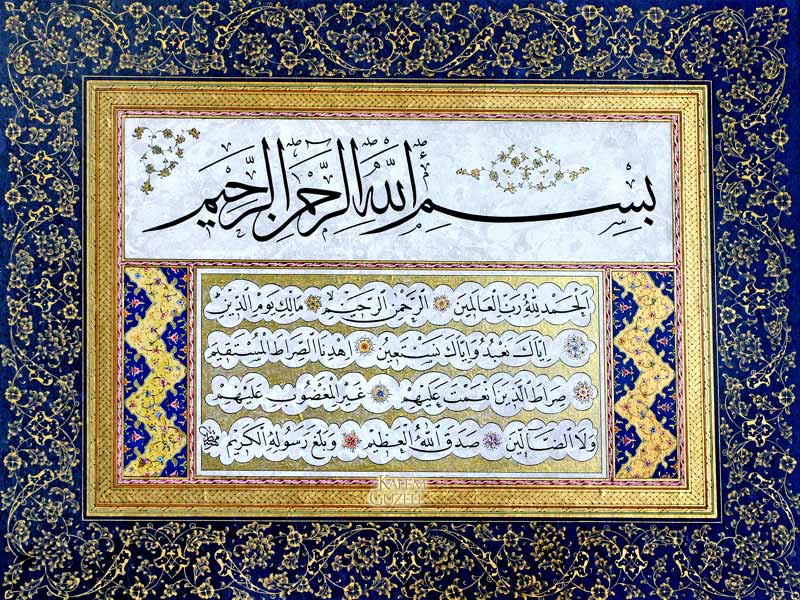 بِسْمِ اللّٰهِ الرَّحْمٰنِ الرَّحِيمِ
اَلْحَمْدُ لِلّٰهِ رَبِّ الْعَالَمِينَ اَلرَّحْمٰنِ الرَّحِيمِ مَالِكِ يَوْمِ الدِّينِ
اِيَّاكَ نَعْبُدُ وَاِيَّاكَ نَسْتَعِينُ اِهْدِنَا الصِّرَاطَ الْمُسْتَقِيمَ
صِرَاطَ الَّذِينَ اَنْعَمْتَ عَلَيْهِمْ غَيْرِ الْمَغْضُوبِ عَلَيْهِمْ
وَلَا الضَّالِّينَ صَدَقَ اللّٰهُ الْعَظِيمُ وَبَلَّغَ رَسُولُهُ الْكَرِيمُ
KALEM
GÜZELİ